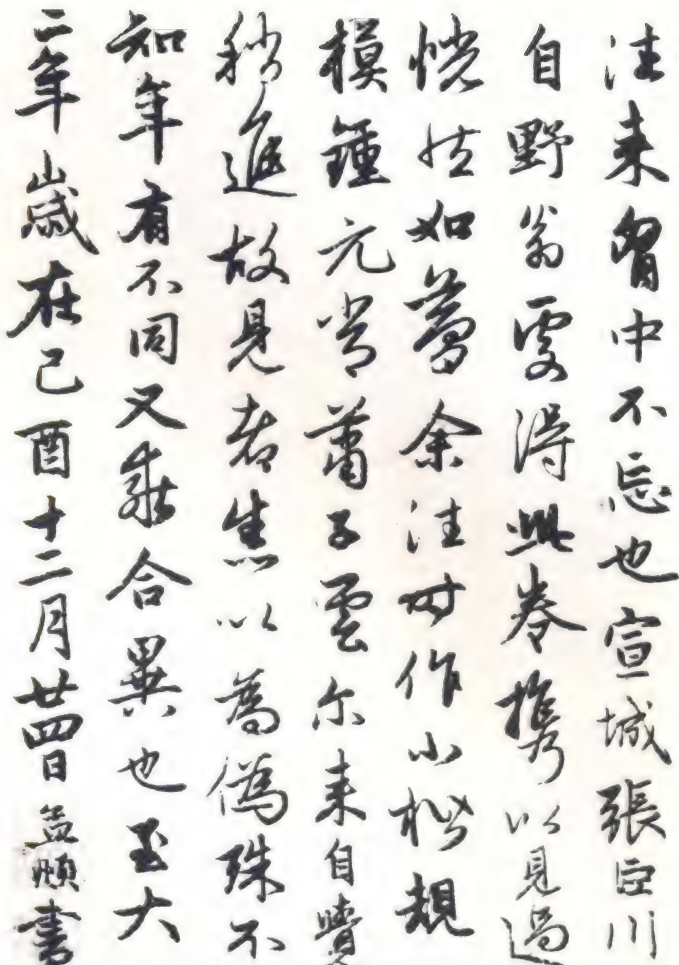 往来胷中不忘也宣城張巨川
自野翁處得此卷攜以見過
恍然如夢余往時作小楷規
模鍾元常蕭子雲尔来自覺
稍進故見者悉以為偽殊不
知年有不同又乖合異也至大
二年歲在己酉十二月廿四日孟頫書